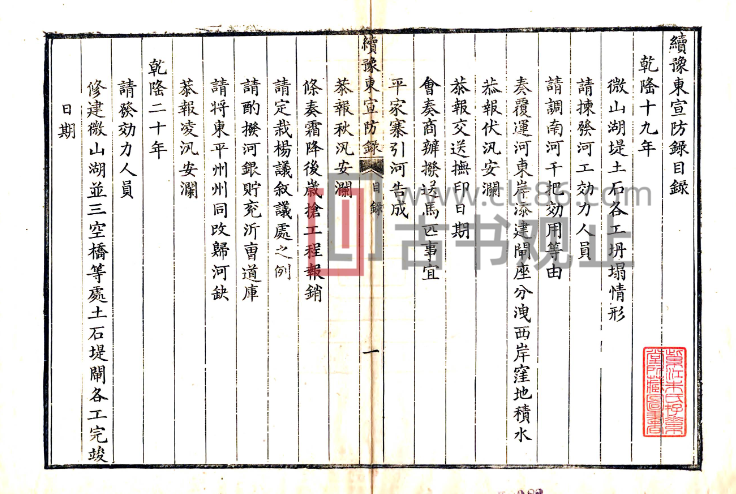 續豫東宣防録目録
乾隆十九年
微山湖堤土石各工坍塌情形
請揀發河工効力人員
請調南河千把効用等由
奏覆運河東岸添建閘座分洩西岸窪地積水
恭報伏汛安瀾
恭報交送撫印日期
會奏商辦撥送馬匹事宜
平家寨引河告成
續豫東宣防録 目録 一
恭報秋汛安瀾
條奏霜降後歲搶工程報銷
請定栽楊議叙議處之例
請酌撥河銀貯兖沂曹道庫
請將東平州州同改歸河缺
恭報凌汛安瀾
乾隆二十年
請發効力人員
修建微山湖並三空橋等處土石堤閘各工完竣
日期
www.cl686.com
古书观止